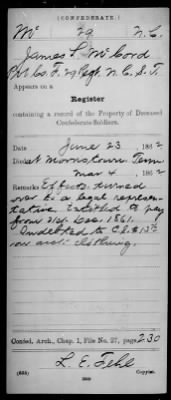 (CONFEDERATE.)
Mc 29 N.C.
James L. McCord
Pvt Co. F. 29 Regt. N.C.S.T.
Appears on a
Register
containing a record of the Property of Deceased
Confederate Soldiers.
Date June 23, 1862
Died at Morristown Tenn
Mar 4, 1862
Remarks Effects turned
over to a legal represen-
tative. Entitled to pay
from 31st Dec. 1861.
Indebted to C.S. $13
on acct clothing.
Confed. Arch., Chap. 1, File No. 27, page 230
L. E. Fehl
Copyist.